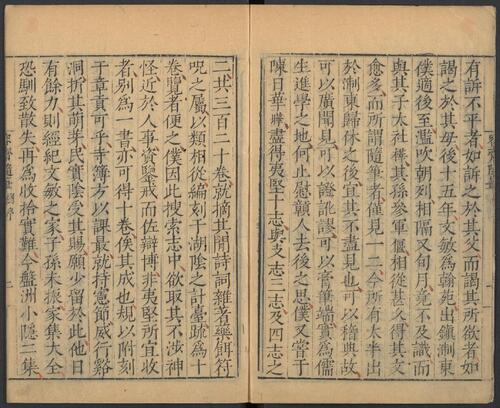 有訴不平者如訴於其父而謁其所欲者如
謁之於其母後十五年文敏爲翰苑出鎮浙東
僕適後至濫吹朝列相隔又旬月竟不及識而
與其子太社㮚其孫參軍偃相從甚久得其文
愈多而所謂隨筆者僅見一二今所有太半出
於浙東歸休之後宜其不盡見也可以稽典故
可以廣聞見可以證訛謬可以膏筆端實爲儒
生進學之地何止慰贛人去後之思僕又嘗于
陳日華曄盡得夷堅十志與支志三志及四志之
二共三百二十卷就摘其間詩詞雜著藥餌符
呪之屬以類相從編刻于湖陰之計臺疏爲十
卷覽者便之僕因此搜索志中欲取其不涉神
怪近於人事資鑒戒而佐辯博非夷堅所宜收
者別爲一書亦可得十卷俟其成也規以附刻
于章貢可乎寺簿方以課最就持憲節威行谿
洞折其萌芽民實陰受其賜願少留於此他日
有餘力則經紀文敏之家子孫未振家集大全
恐馴致散失再爲收拾實難今盤洲小隱二集